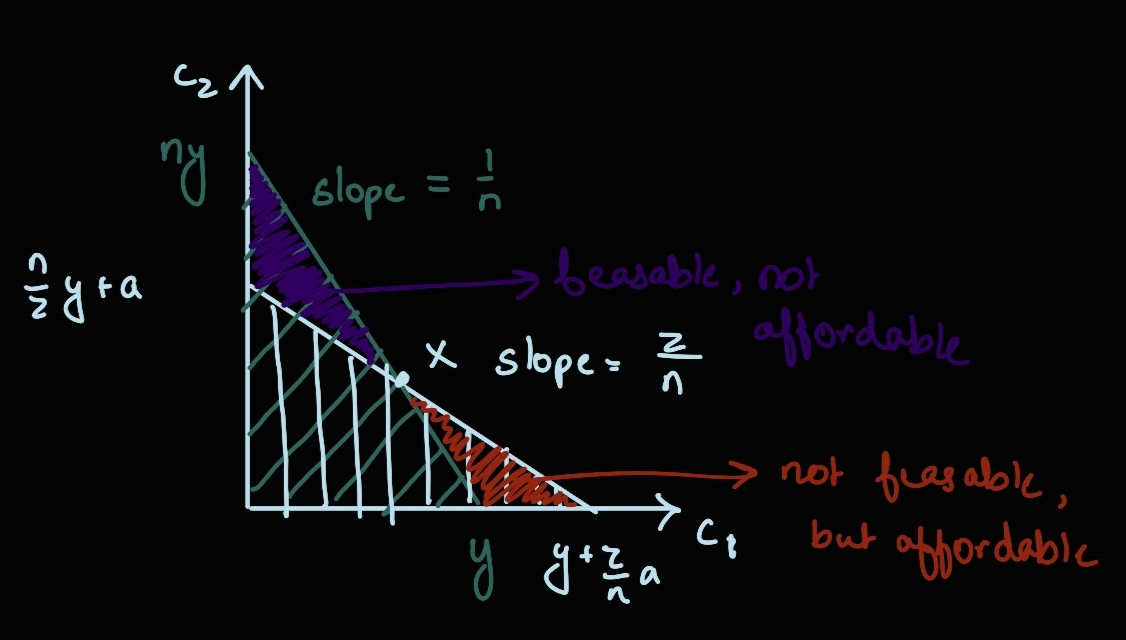 c₂
ny
slope = 1/n
n/z y + a
feasable, not
affordable
x
slope = z/n
not feasable,
but affordable
c₁
y
y + z/n a